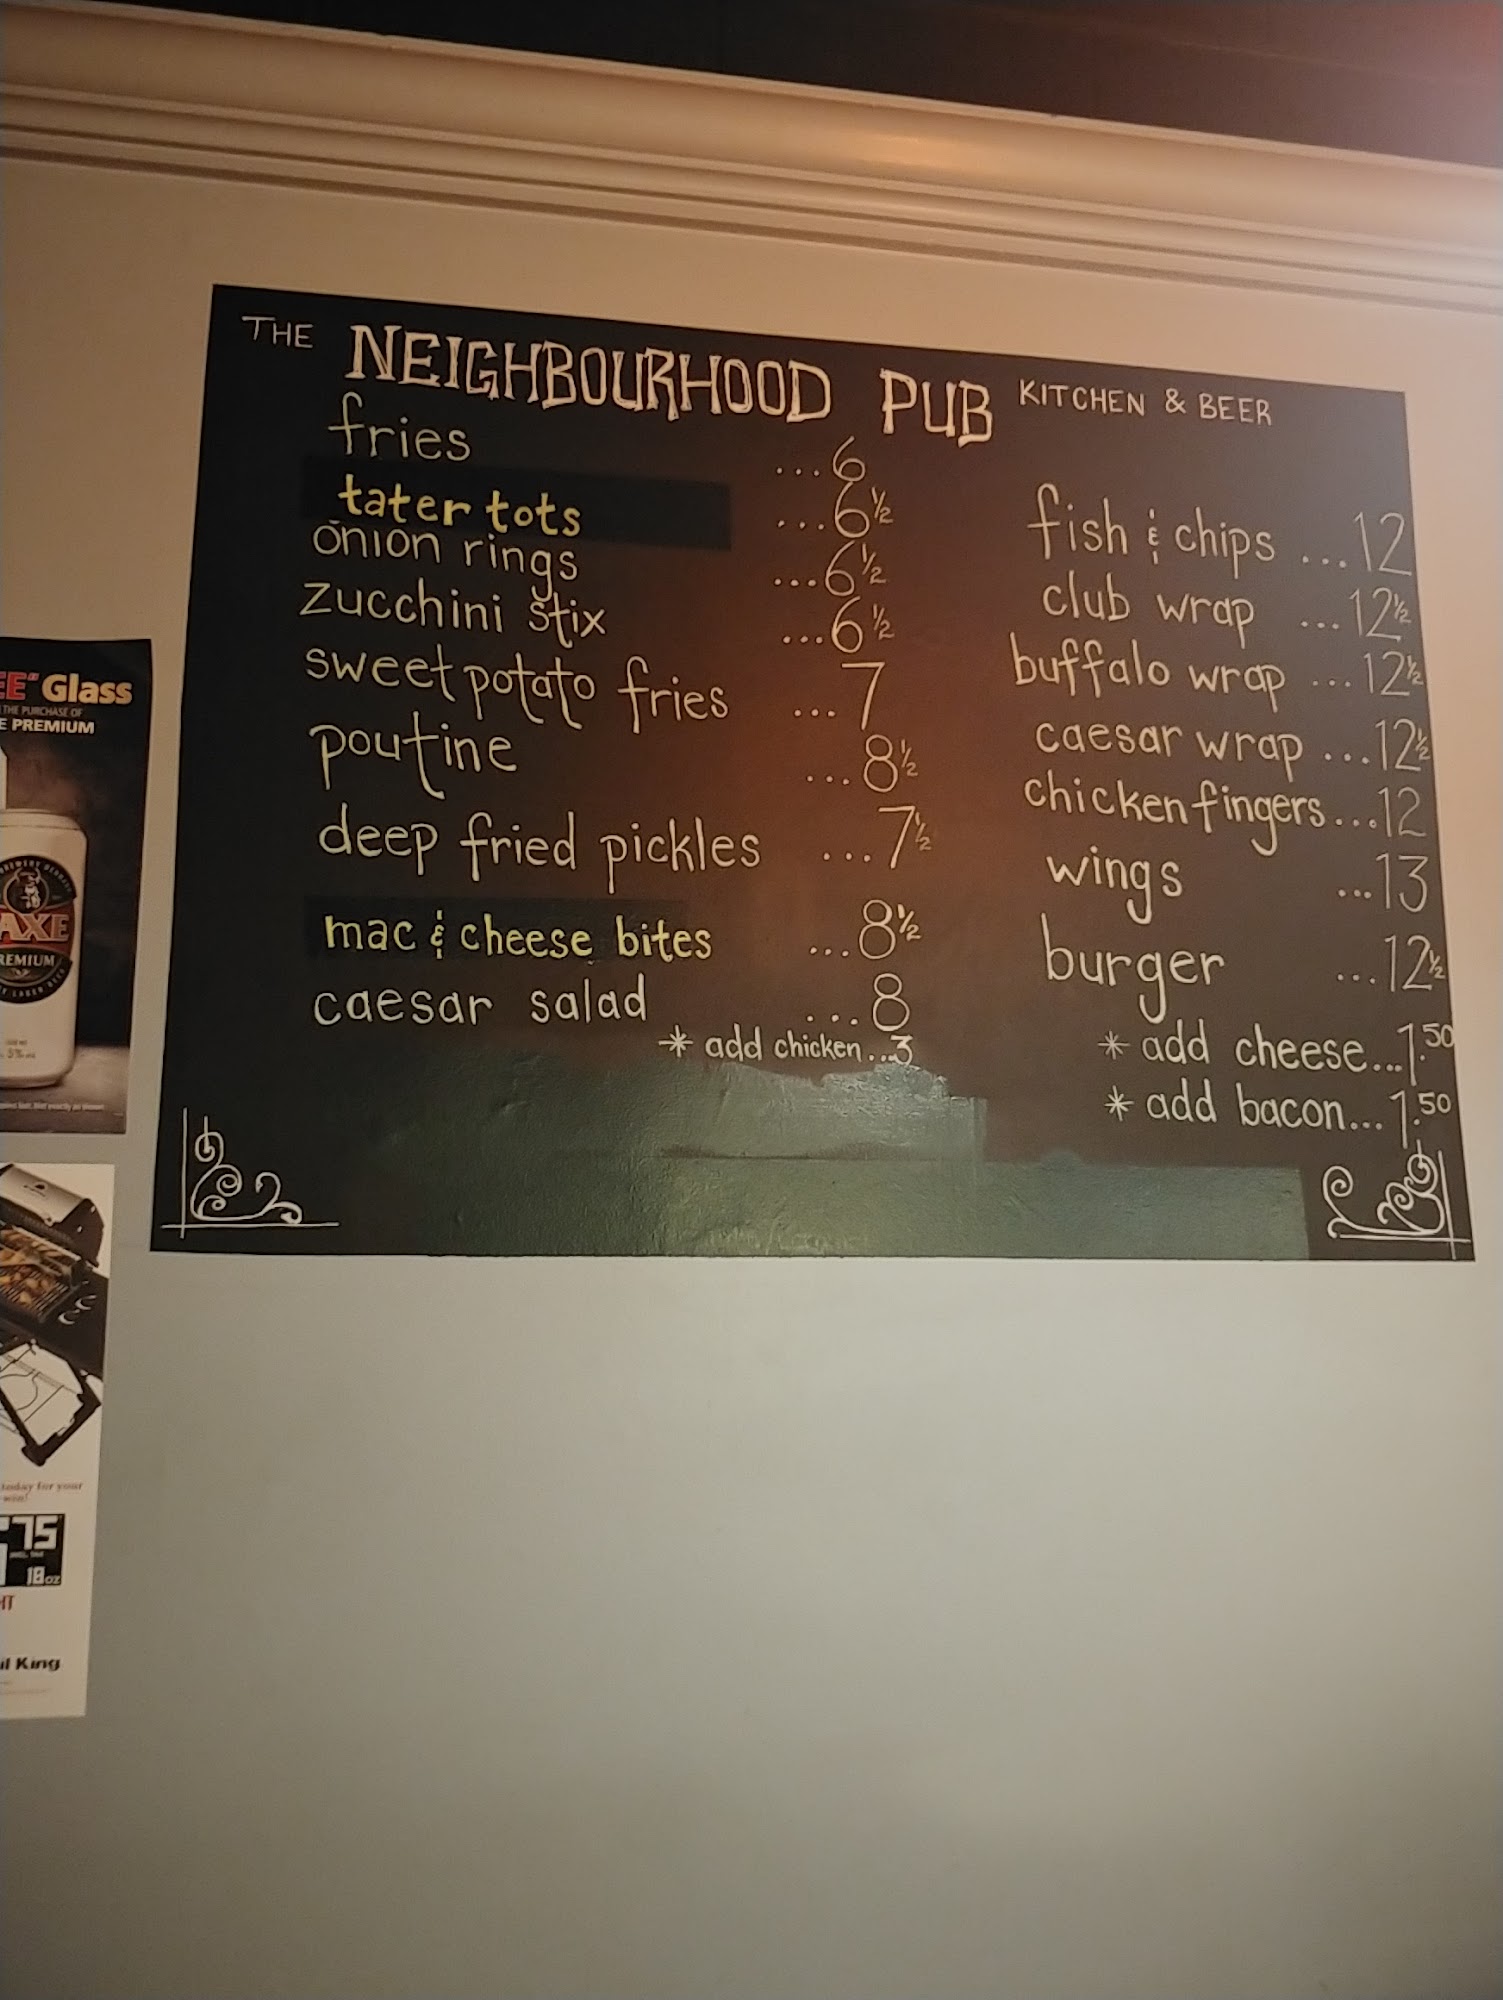 THE NEIGHBOURHOOD PUB KITCHEN & BEER
fries ...6
tater tots ...6½
onion rings ...6½
zucchini stix ...6½
sweet potato fries ...7
poutine ...8½
deep fried pickles ...7½
mac & cheese bites ...8½
caesar salad ...8
* add chicken...3
fish & chips ...12
club wrap ...12½
buffalo wrap ...12½
caesar wrap ...12½
chicken fingers...12
wings ...13
burger ...12½
* add cheese...1.50
* add bacon...1.50
Glass
THE PURCHASE OF
PREMIUM
AXE
REMIUM
today for your
75
18oz
King